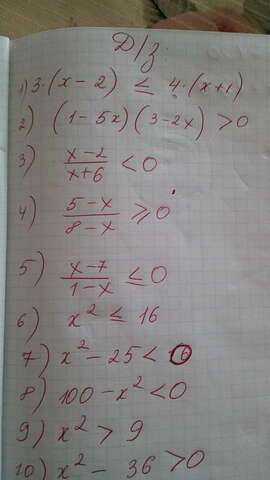 Д/з.
1) 3·(x-2) ≤ 4·(x+1)
2) (1-5x)(3-2x) >0
3) x-2/x+6 <0
4) 5-x/8-x ≥0
5) x-7/1-x ≤0
6) x² ≤ 16
7) x²-25< 0
8) 100-x²<0
9) x² > 9
10) x² - 36 >0